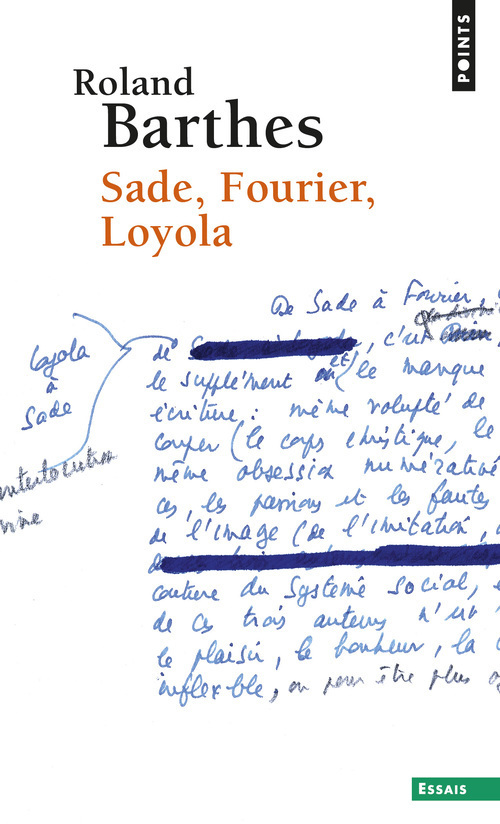 POINTS
Roland
Barthes
Sade, Fourier,
Loyola
De Sade à Fourier
Loyola
à
Sade
de , c'est
le supplément et le manque
écriture : même volupté de
couper (le corps christique, le
même obsession numérative
les passions et les fautes
de l'image (de l'imitation,
couture du système social,
de ces trois auteurs n'est
le plaisir, le bonheur, la
inflexible, ou pour être plus
ESSAIS